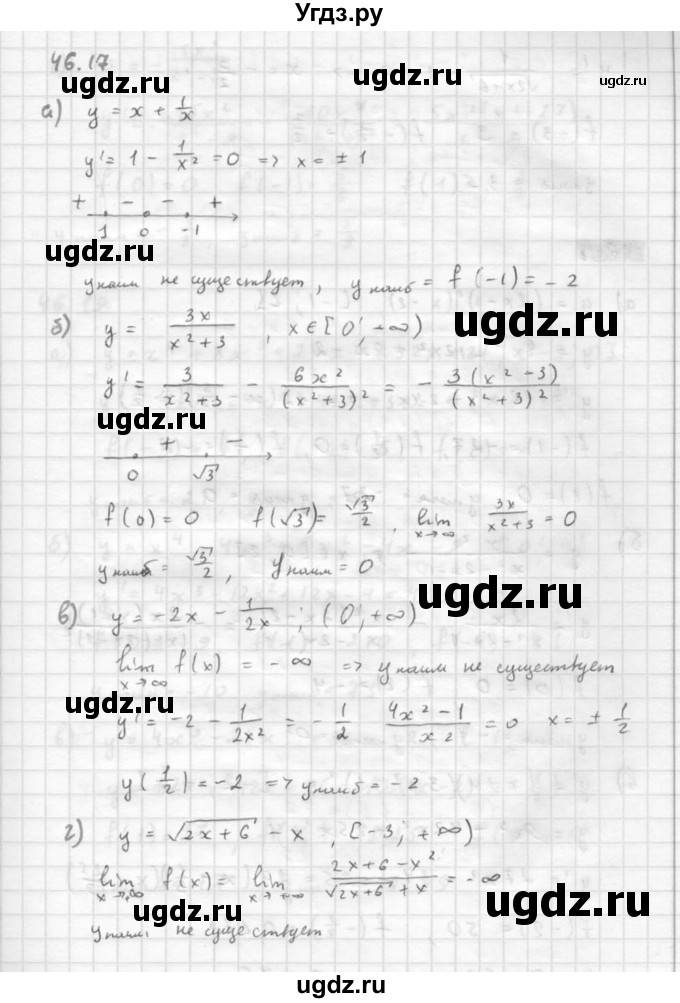 Угдз.ру
46.17
ugdz.ru ugdz.ru ugdz.ru
а) y = x + 1/x
y' = 1 - 1/x² = 0 => x = ± 1
+ - - +
1 0 -1
ugdz.ru
y наим не существует, y наиб = f(-1) = -2
ugdz.ru
б) y = 3x/(x² + 3), x ∈ [0; +∞)
y' = 3/(x² + 3) - 6x²/(x² + 3)² = - 3(x² - 3)/(x² + 3)²
+ -
0 √3
f(0) = 0 f(√3) = √3/2, lim x→∞ 3x/(x² + 3) = 0
ugdz.ru
y наиб = √3/2, y наим = 0
ugdz.ru
в) y = -2x - 1/2x; (0; +∞)
lim x→∞ f(x) = -∞ => y наим не существует
ugdz.ru
y' = -2 - 1/2x² = - 1/2 4x² - 1/x² = 0 x = ± 1/2
y(1/2) = -2 => y наиб = -2
г) y = √2x + 6 - x, [-3; +∞)
lim x→∞ f(x) = lim x→+∞ (2x + 6 - x²)/(√2x+6 + x) = -∞
ugdz.ru
ugdz.ru
y наим не существует
ugdz.ru ugdz.ru